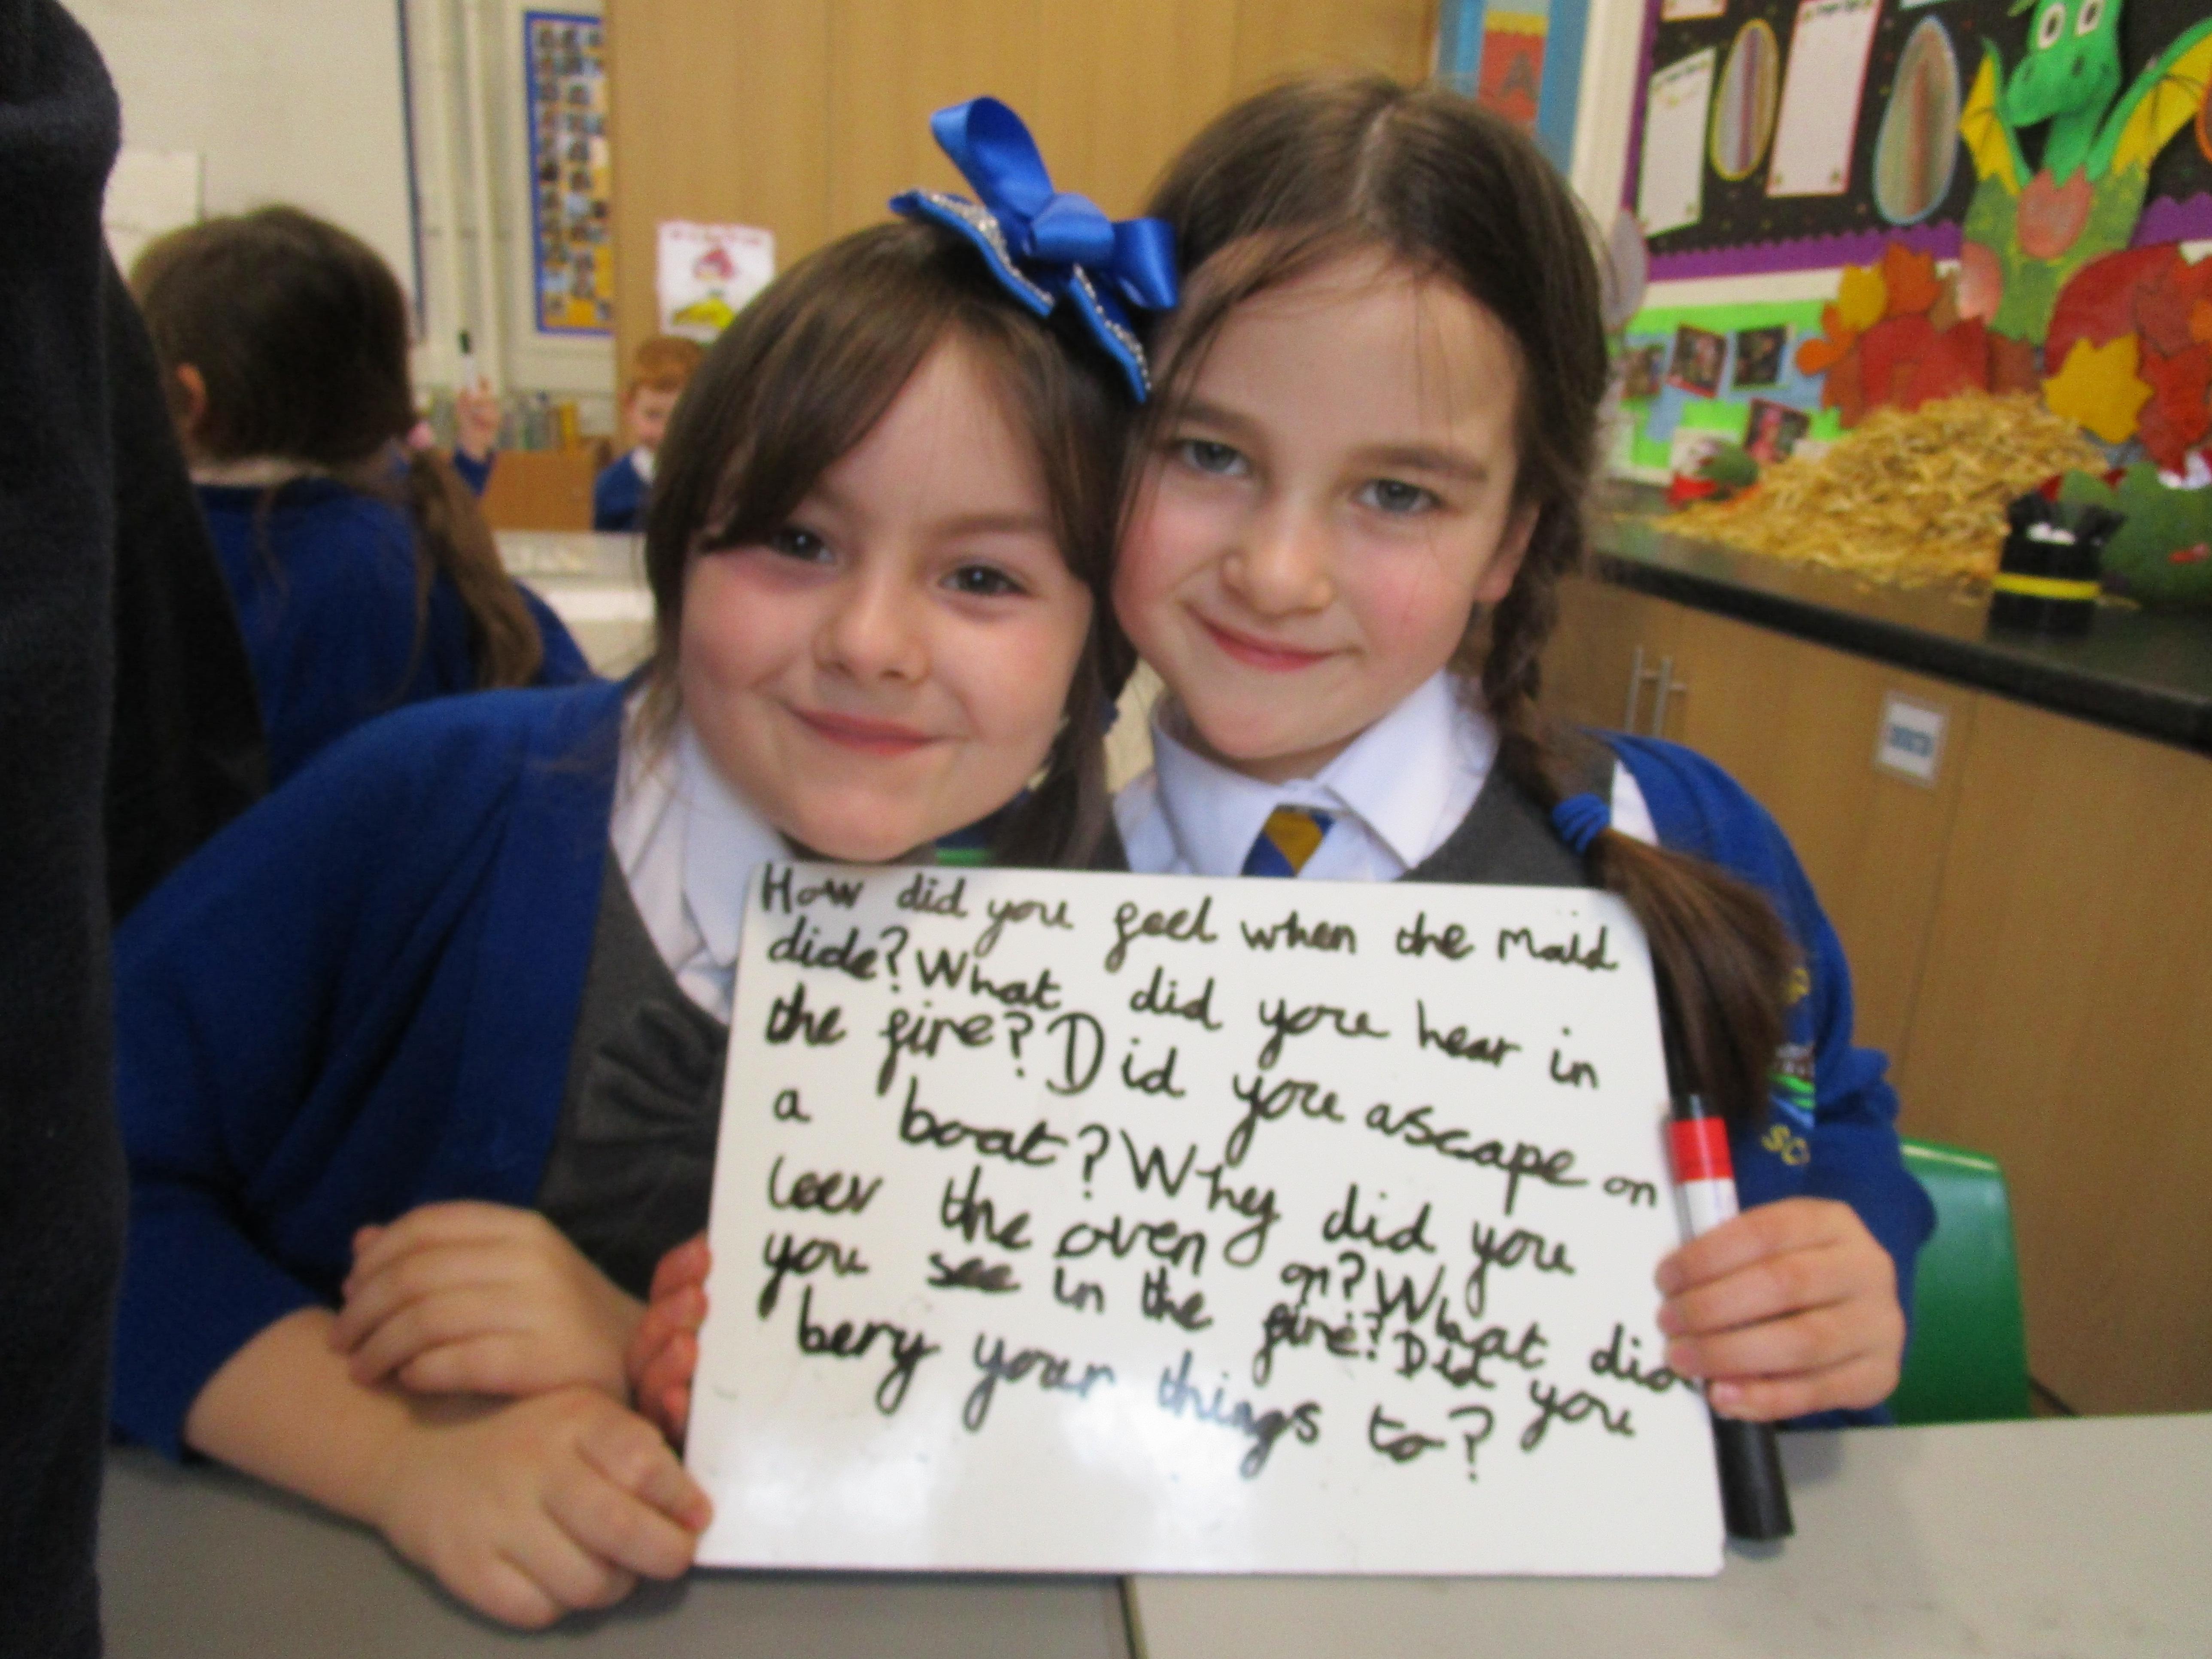 How did you feel when the Maid
dide? What did you hear in
the fire? Did you ascape on
a boat? Why did you
leev the oven on? What did
you see in the fire? Did you
bery your things to?